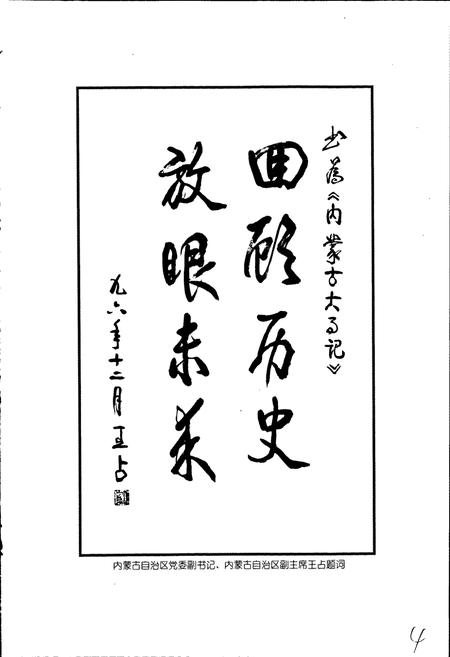 书为《内蒙古大事记》
回顾历史
放眼未来
九六年十二月 王占
内蒙古自治区党委副书记、内蒙古自治区副主席王占题词
4